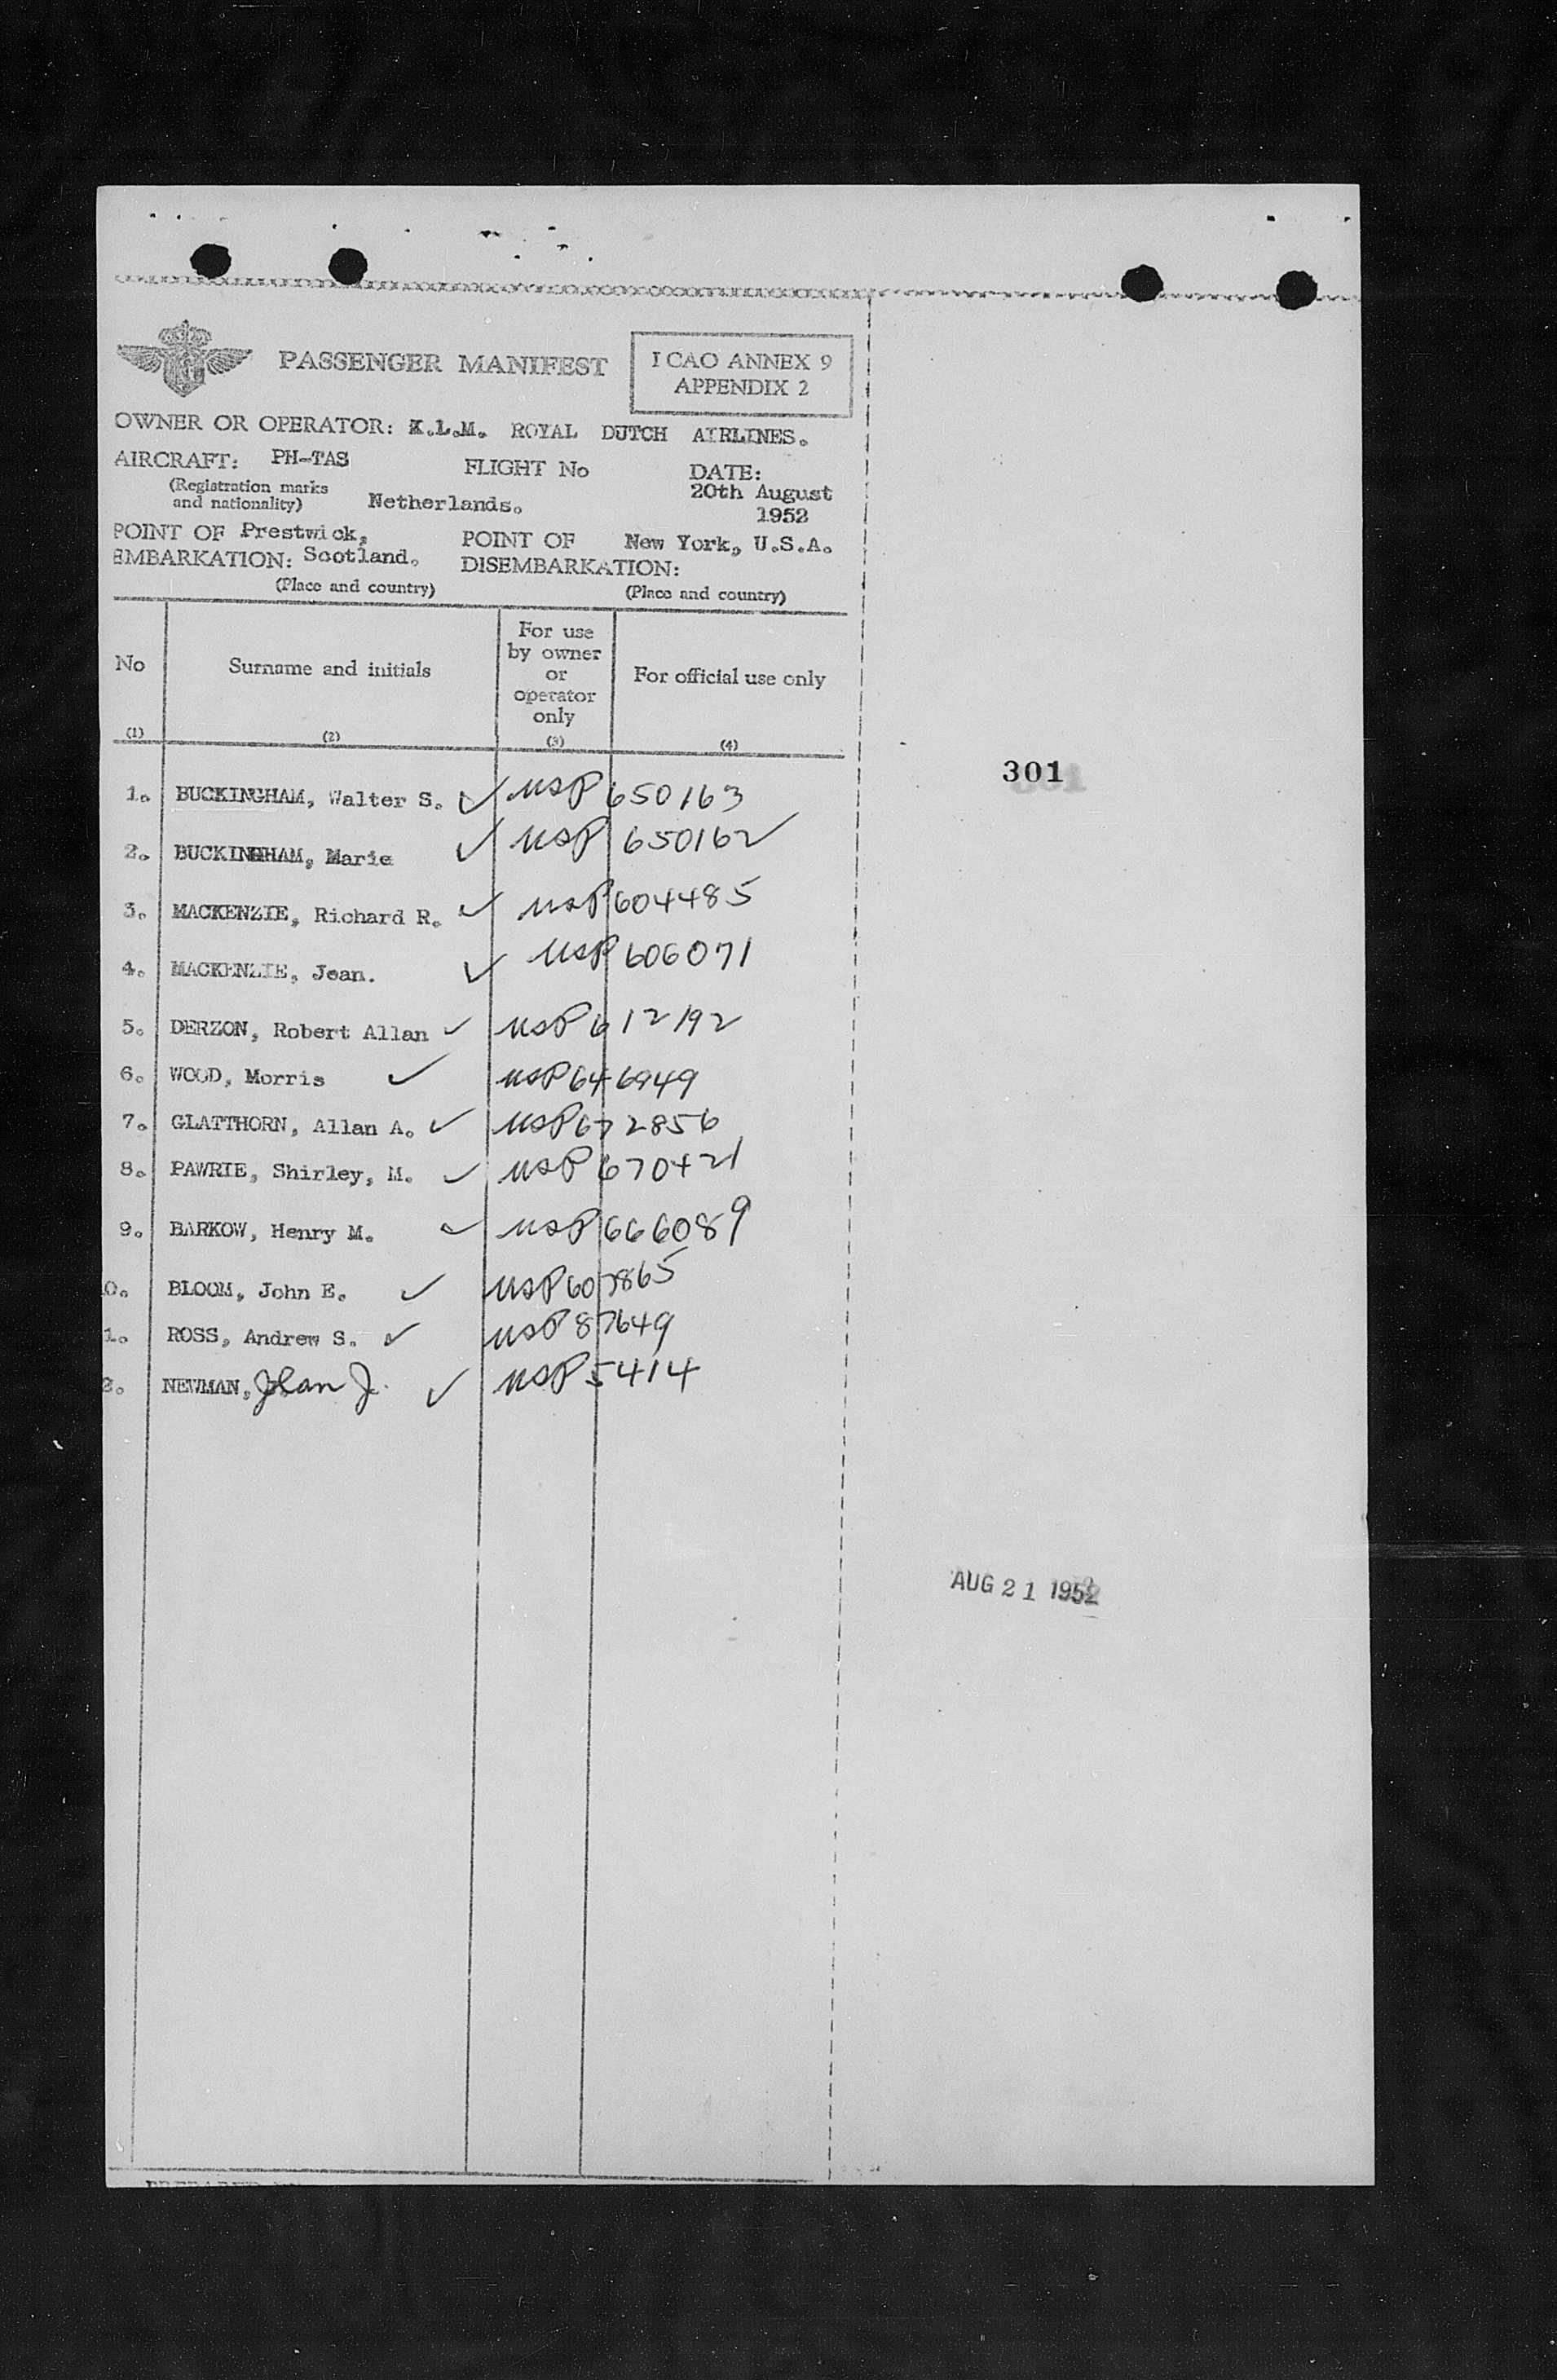 PASSENGER MANIFEST
I CAO ANNEX 9
APPENDIX 2
OWNER OR OPERATOR: K.L.M. ROYAL DUTCH AIRLINES.
AIRCRAFT: PH-TAS FLIGHT No DATE:
(Registration marks and nationality) Netherlands. 20th August 1952
POINT OF EMBARKATION: Prestwick, Scotland. POINT OF DISEMBARKATION: New York, U.S.A.
(Place and country) (Place and country)
No Surname and initials For use by owner or operator only For official use only
(1) (2) (3) (4)
301
1. BUCKINGHAM, Walter S. ✓ USP 650163
2. BUCKINGHAM, Marie ✓ USP 650162
3. MACKENZIE, Richard R. ✓ USP 604485
4. MACKENZIE, Jean. ✓ USP 606071
5. DERZON, Robert Allan ✓ USP 612192
6. WOOD, Morris ✓ USP 646949
7. GLATTHORN, Allan A. ✓ USP 672856
8. PAWRIE, Shirley, M. ✓ USP 670421
9. BARKOW, Henry M. ✓ USP 666089
0. BLOOM, John E. ✓ USP 607865
1. ROSS, Andrew S. ✓ USP 87649
2. NEWMAN, J. ✓ USP 5414
AUG 21 1952